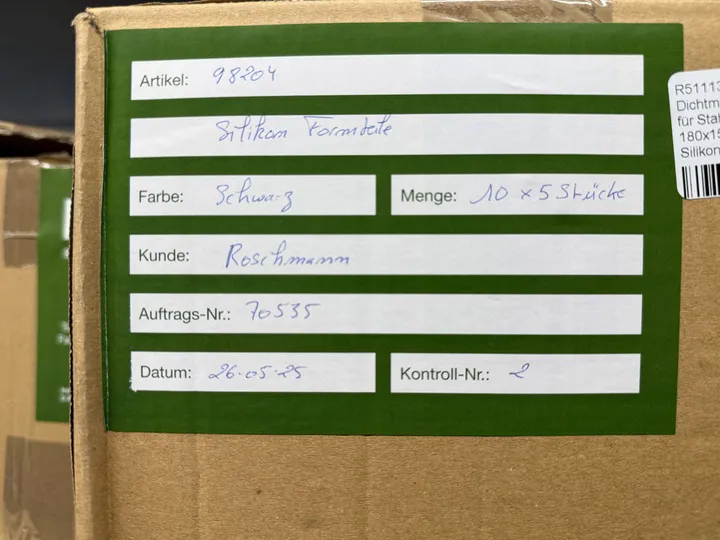 Artikel: 98204
Silikon Formteile
Farbe: Schwarz
Menge: 10 x 5 Stücke
Kunde: Roschmann
Auftrags-Nr.: 70535
Datum: 26.05.25
Kontroll-Nr.: 2
R51113
Dichtm
für Stah
180x15
Silikon